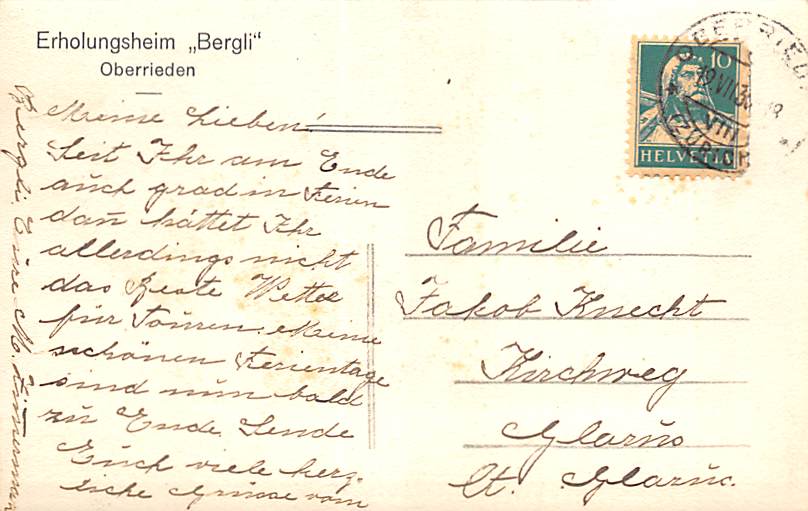 Erholungsheim „Bergli“
Oberrieden
Meine Lieben!
Seit Ihr am Ende
auch grad in Ferien
dan̄ hättet Ihr
allerdings nicht
das beste Wetter
für Touren. Meine
schönen Ferientage
sind nun bald
zu Ende. Sende
Euch viele herz-
liche Grüsse vom
Bergli. Eure M.
10
HELVETIA
OBERRIEDEN
19.VII.
(ZÜRICH)
Familie
Jakob Knecht
Kirchweg
Glarus
Ct. Glarus.